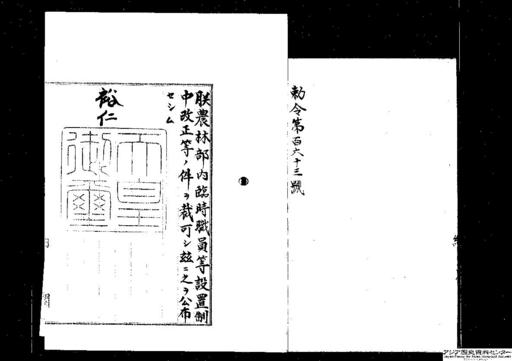 勅令第百六十三號
朕農林部內臨時職員等設置制
中改正等ノ件ヲ裁可シ茲ニ之ヲ公布
セシム
裕仁
天皇
御璽
アジア歴史資料センター